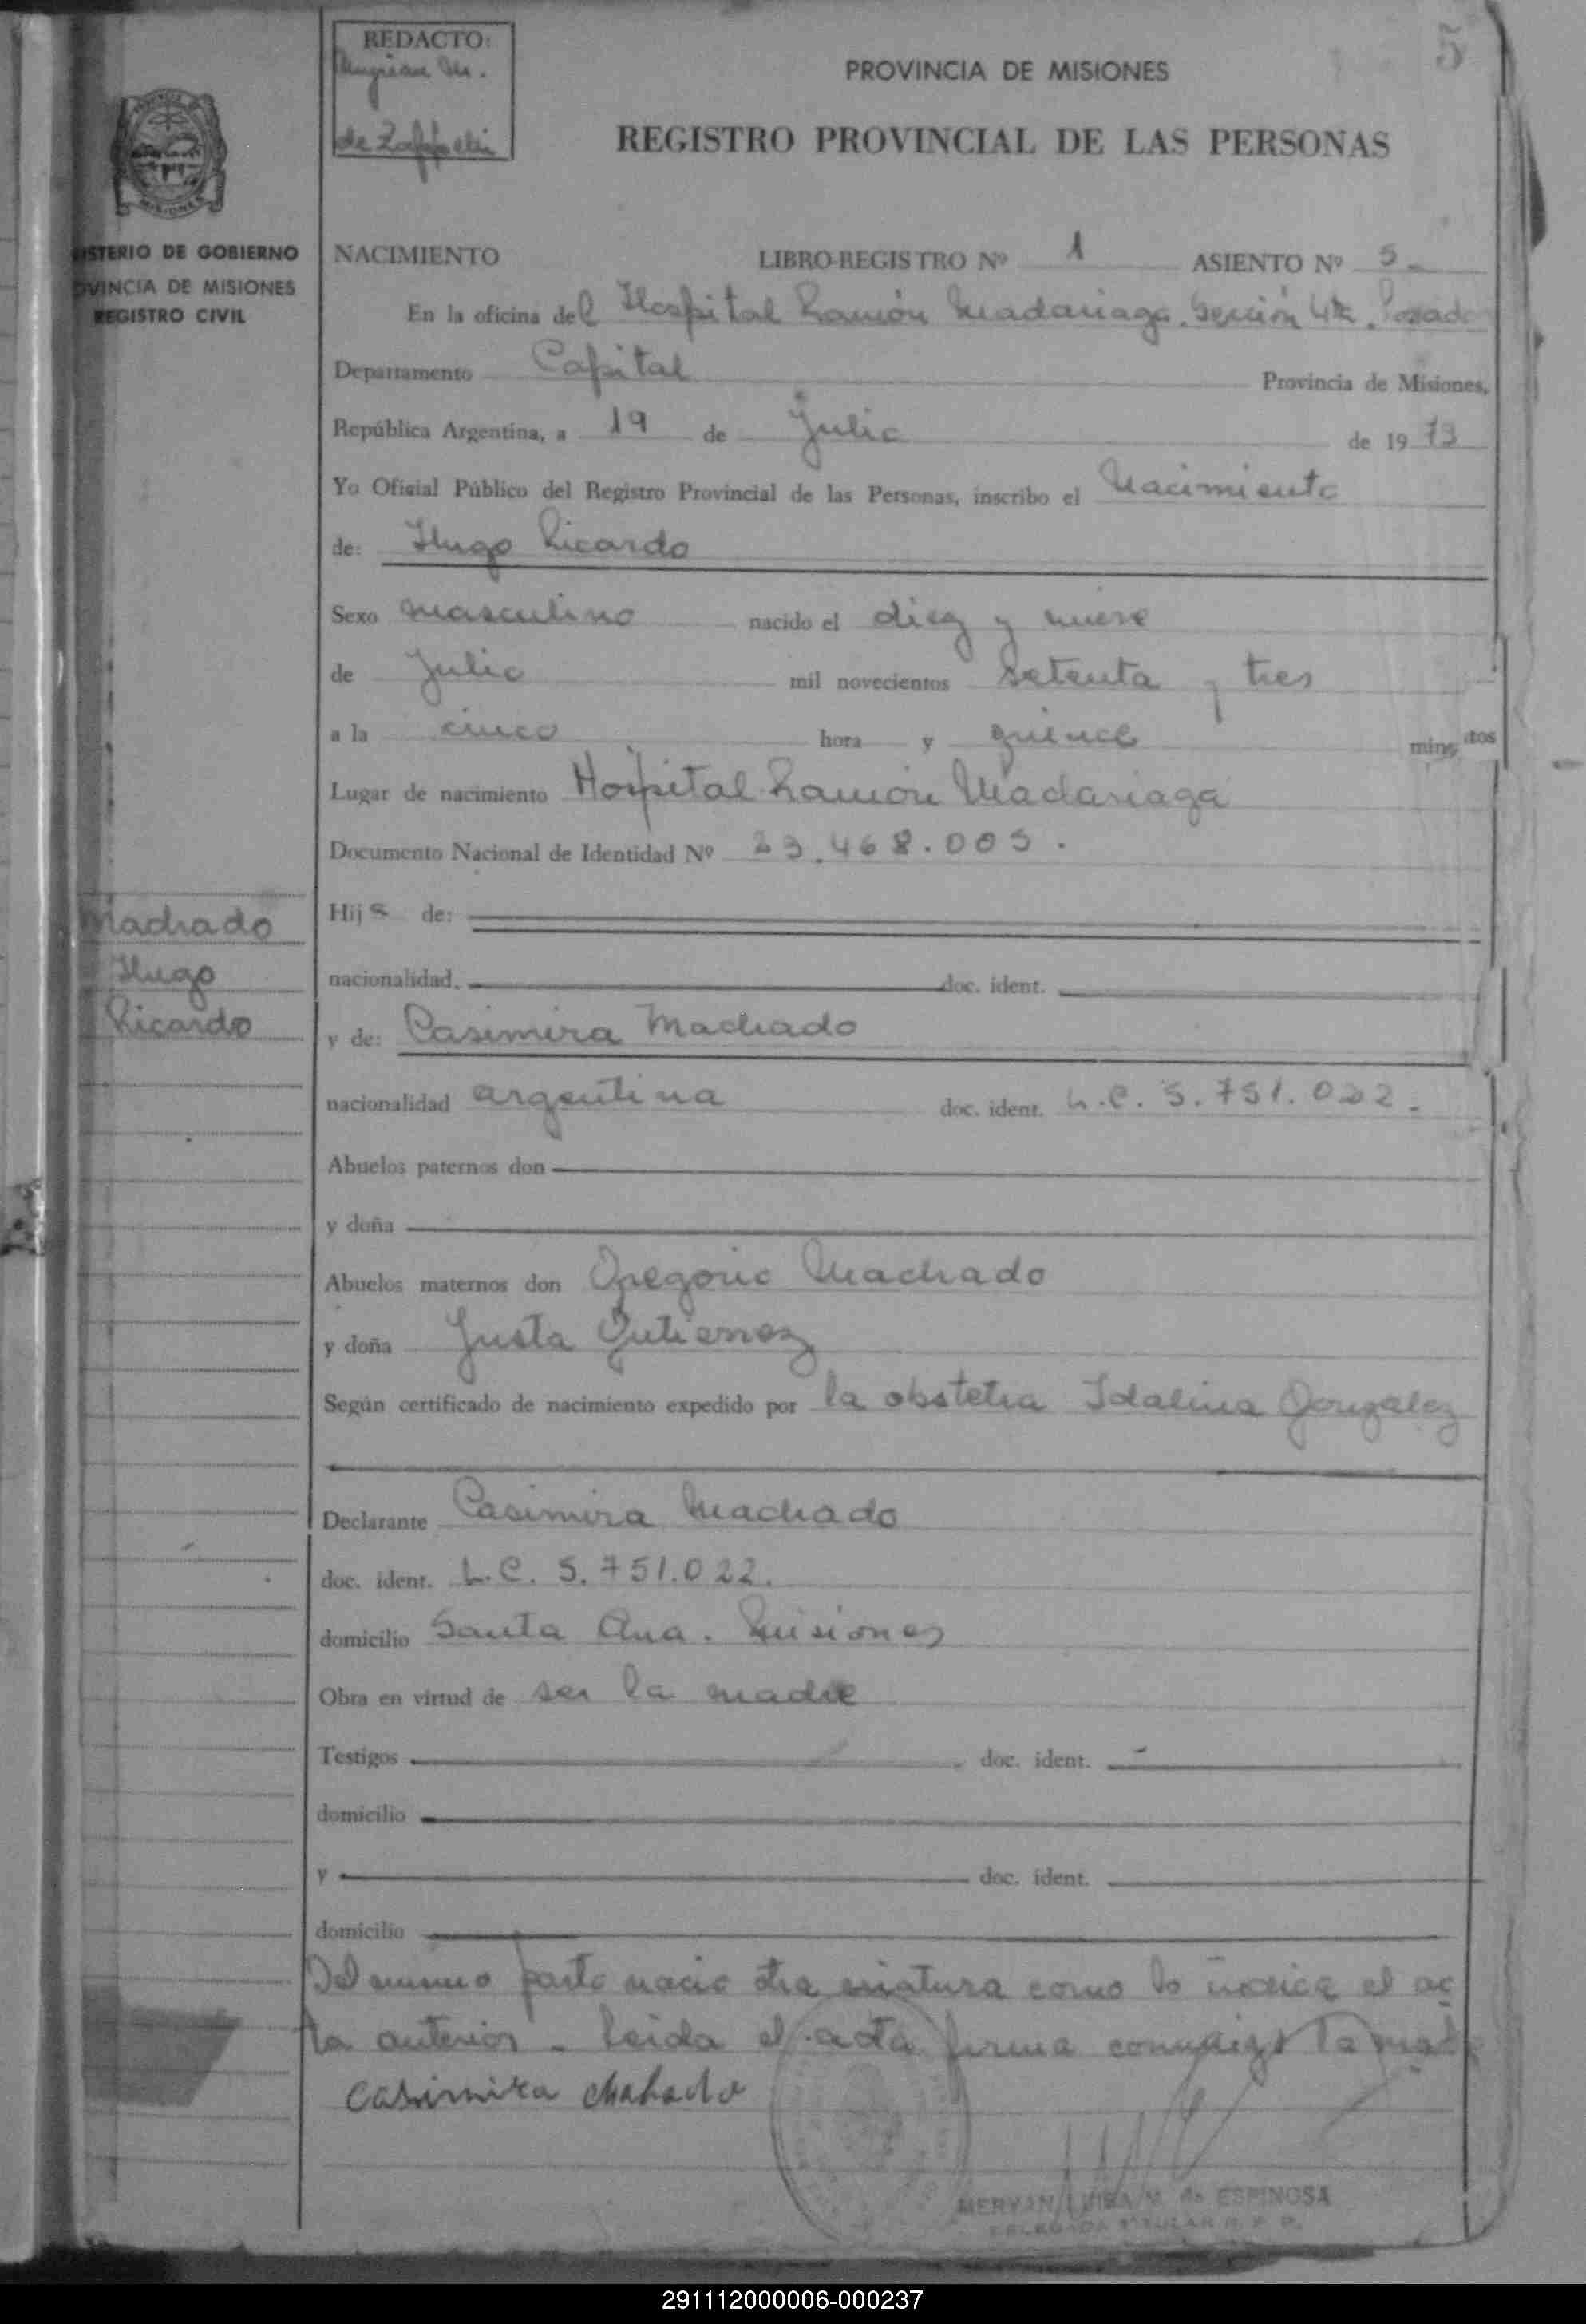 5
REDACTO:
de Zappelli
PROVINCIA DE MISIONES
REGISTRO PROVINCIAL DE LAS PERSONAS
ISTERIO DE GOBIERNO
VINCIA DE MISIONES
REGISTRO CIVIL
NACIMIENTO LIBRO-REGISTRO Nº 1 ASIENTO Nº 5
En la oficina del Hospital Ramón Madariaga. Sección 4ta. Posadas
Departamento Capital Provincia de Misiones,
República Argentina, a 19 de Julio de 1973
Yo Oficial Público del Registro Provincial de las Personas, inscribo el Nacimiento
de: Hugo Ricardo
Sexo masculino nacido el diez y nueve
de Julio mil novecientos setenta y tres
a la cinco hora y quince minutos
Lugar de nacimiento Hospital Ramón Madariaga
Documento Nacional de Identidad Nº 23.468.005.
Hijo de:
nacionalidad. doc. ident.
Machado
Hugo
Ricardo
y de: Casimira Machado
nacionalidad argentina doc. ident. L.C. 5.751.022.
Abuelos paternos don
y doña
Abuelos maternos don Gregorio Machado
y doña Justa Gutierrez
Según certificado de nacimiento expedido por la obstetra Idalina Gonzalez
Declarante Casimira Machado
doc. ident. L.C. 5.751.022.
domicilio Santa Ana. Misiones
Obra en virtud de ser la madre
Testigos doc. ident.
domicilio
y doc. ident.
domicilio
Del mismo parto nacio otra criatura como lo indica el ac
ta anterior - Leida el acta firma conmigo la madre
Casimira Machado
MERYAN LUISA M. de ESPINOSA
DELEGADA TITULAR R. P. P.
291112000006-000237